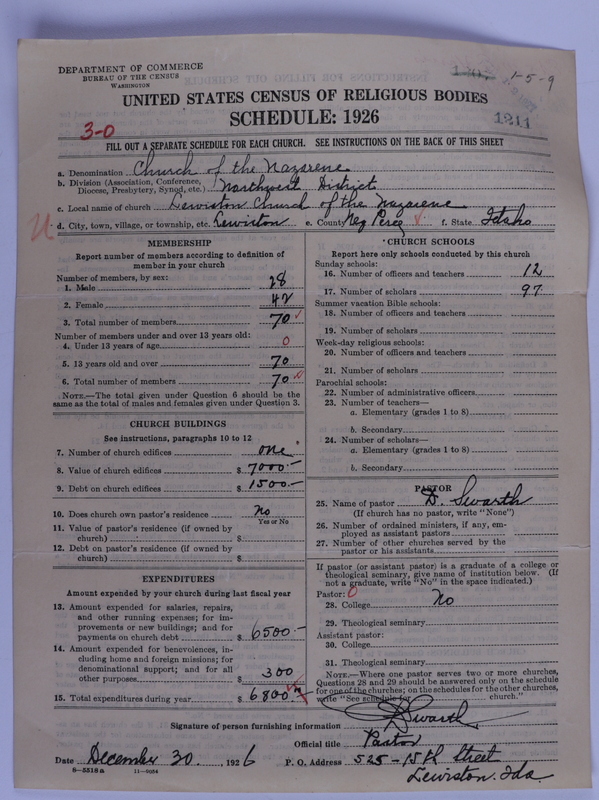 DEPARTMENT OF COMMERCE
BUREAU OF THE CENSUS
WASHINGTON
1-5-9
UNITED STATES CENSUS OF RELIGIOUS BODIES
SCHEDULE: 1926
1211
3-0
FILL OUT A SEPARATE SCHEDULE FOR EACH CHURCH. SEE INSTRUCTIONS ON THE BACK OF THIS SHEET
a. Denomination Church of the Nazarene
b. Division (Association, Conference, Diocese, Presbytery, Synod, etc.) Northwest District
c. Local name of church Lewiston Church of the Nazarene
d. City, town, village, or township, etc. Lewiston e. County Nez Perce f. State Idaho
MEMBERSHIP
Report number of members according to definition of
member in your church
Number of members, by sex:
1. Male 28
2. Female 42
3. Total number of members 70
Number of members under and over 13 years old:
4. Under 13 years of age 0
5. 13 years old and over 70
6. Total number of members 70
NOTE.—The total given under Question 6 should be the
same as the total of males and females given under Question 3.
CHURCH BUILDINGS
See instructions, paragraphs 10 to 12
7. Number of church edifices one
8. Value of church edifices $ 7000.-
9. Debt on church edifices $ 1500.-
10. Does church own pastor's residence No
Yes or No
11. Value of pastor's residence (if owned by
church) $
12. Debt on pastor's residence (if owned by
church) $
EXPENDITURES
Amount expended by your church during last fiscal year
13. Amount expended for salaries, repairs,
and other running expenses; for im-
provements or new buildings; and for
payments on church debt $ 6500.-
14. Amount expended for benevolences, in-
cluding home and foreign missions; for
denominational support; and for all
other purposes $ 300
15. Total expenditures during year $ 6800
CHURCH SCHOOLS
Report here only schools conducted by this church
Sunday schools:
16. Number of officers and teachers 12
17. Number of scholars 97
Summer vacation Bible schools:
18. Number of officers and teachers
19. Number of scholars
Week-day religious schools:
20. Number of officers and teachers
21. Number of scholars
Parochial schools:
22. Number of administrative officers
23. Number of teachers—
a. Elementary (grades 1 to 8)
b. Secondary
24. Number of scholars—
a. Elementary (grades 1 to 8)
b. Secondary
PASTOR
25. Name of pastor D. Swarth
(If church has no pastor, write "None")
26. Number of ordained ministers, if any, em-
ployed as assistant pastors
27. Number of other churches served by the
pastor or his assistants
If pastor (or assistant pastor) is a graduate of a college or
theological seminary, give name of institution below. (If
not a graduate, write "No" in the space indicated.)
Pastor: 0
28. College No
29. Theological seminary
Assistant pastor:
30. College
31. Theological seminary
NOTE.—Where one pastor serves two or more churches,
Questions 28 and 29 should be answered only on the schedule
for one of the churches; on the schedules for the other churches,
write "See schedule for church."
Signature of person furnishing information D Swarth
Official title Pastor
Date December 30, 1926 P. O. Address 525-15th Street
Lewiston. Ida.
8-5518a 11-9034